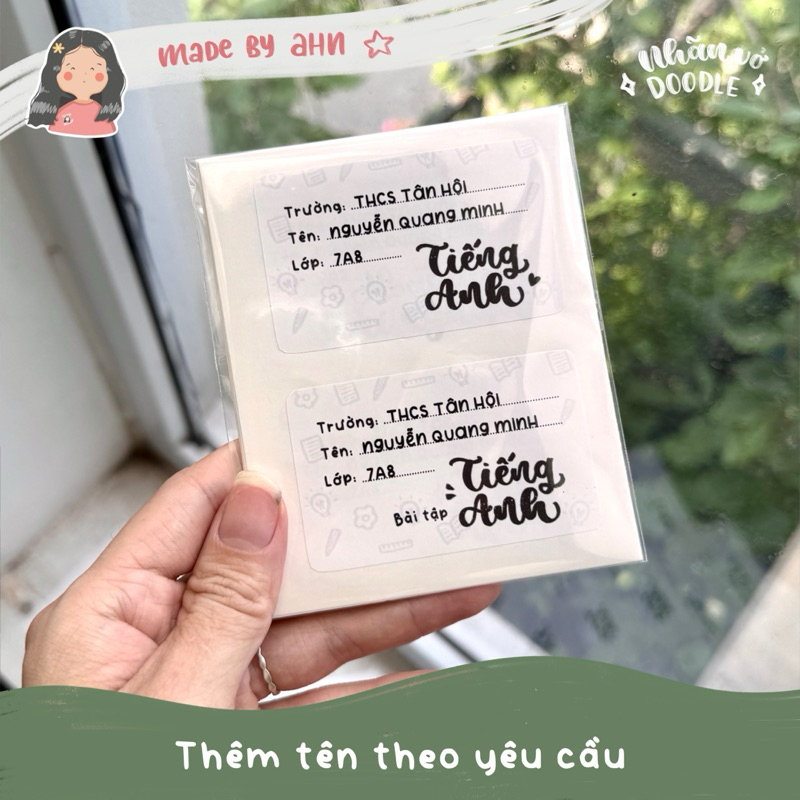 made by ahn
Nhãn vở
DOODLE
Trường: THCS Tân Hội
Tên: nguyễn Quang minh
Lớp: 7A8
Tiếng
Anh
Trường: THCS Tân Hội
Tên: nguyễn Quang minh
Lớp: 7A8
Tiếng
Bài tập Anh
Thêm tên theo yêu cầu